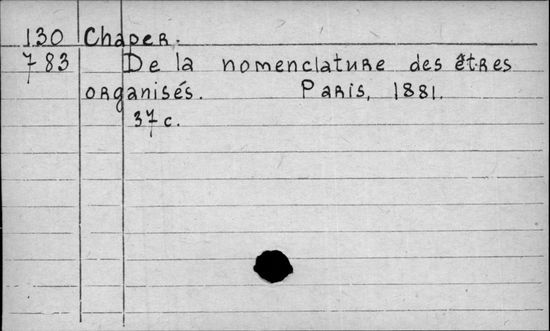 130 Chaper.
783 De la nomenclature des êtres
organisés. Paris, 1881.
37 c.